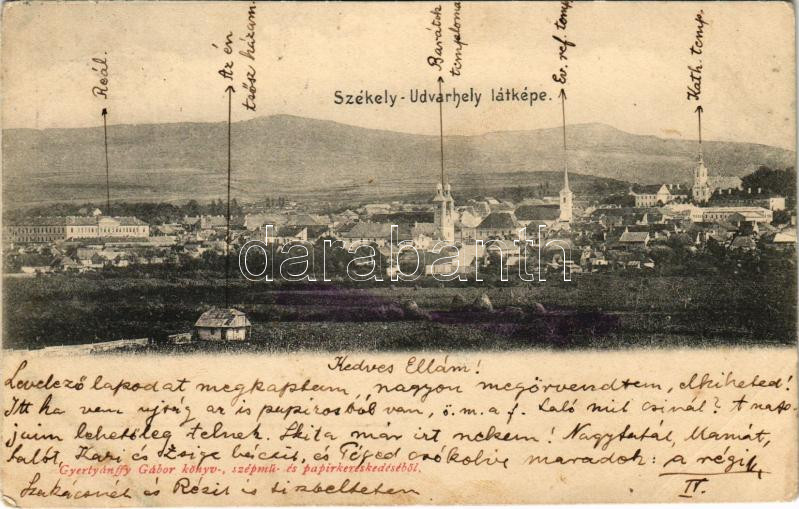 Reál.
Az én
házam.
Barátok
temploma
Ev. ref. temp.
Kath. temp.
Székely-Udvarhely látképe.
darabanth
Kedves Ellám!
Levelező lapodat megkaptam, nagyon megörvendtem, elhiheted!
Itt ha van ujság az is papirosból van, ö. m. a. f. Laló mit csinál? A napo-
jaim lehetőleg telnek. Skita már irt nekem! Nagytatát, Mamát,
Lalót, Kari és Zsiga bácsit, és Téged csókolva maradok: a régi
Gyertyánffy Gábor könyv-, szépmü- és papirkereskedéséből.
és Rézit is tiszteltetem
IV.